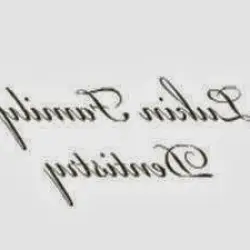 Lukin Family
Dentistry